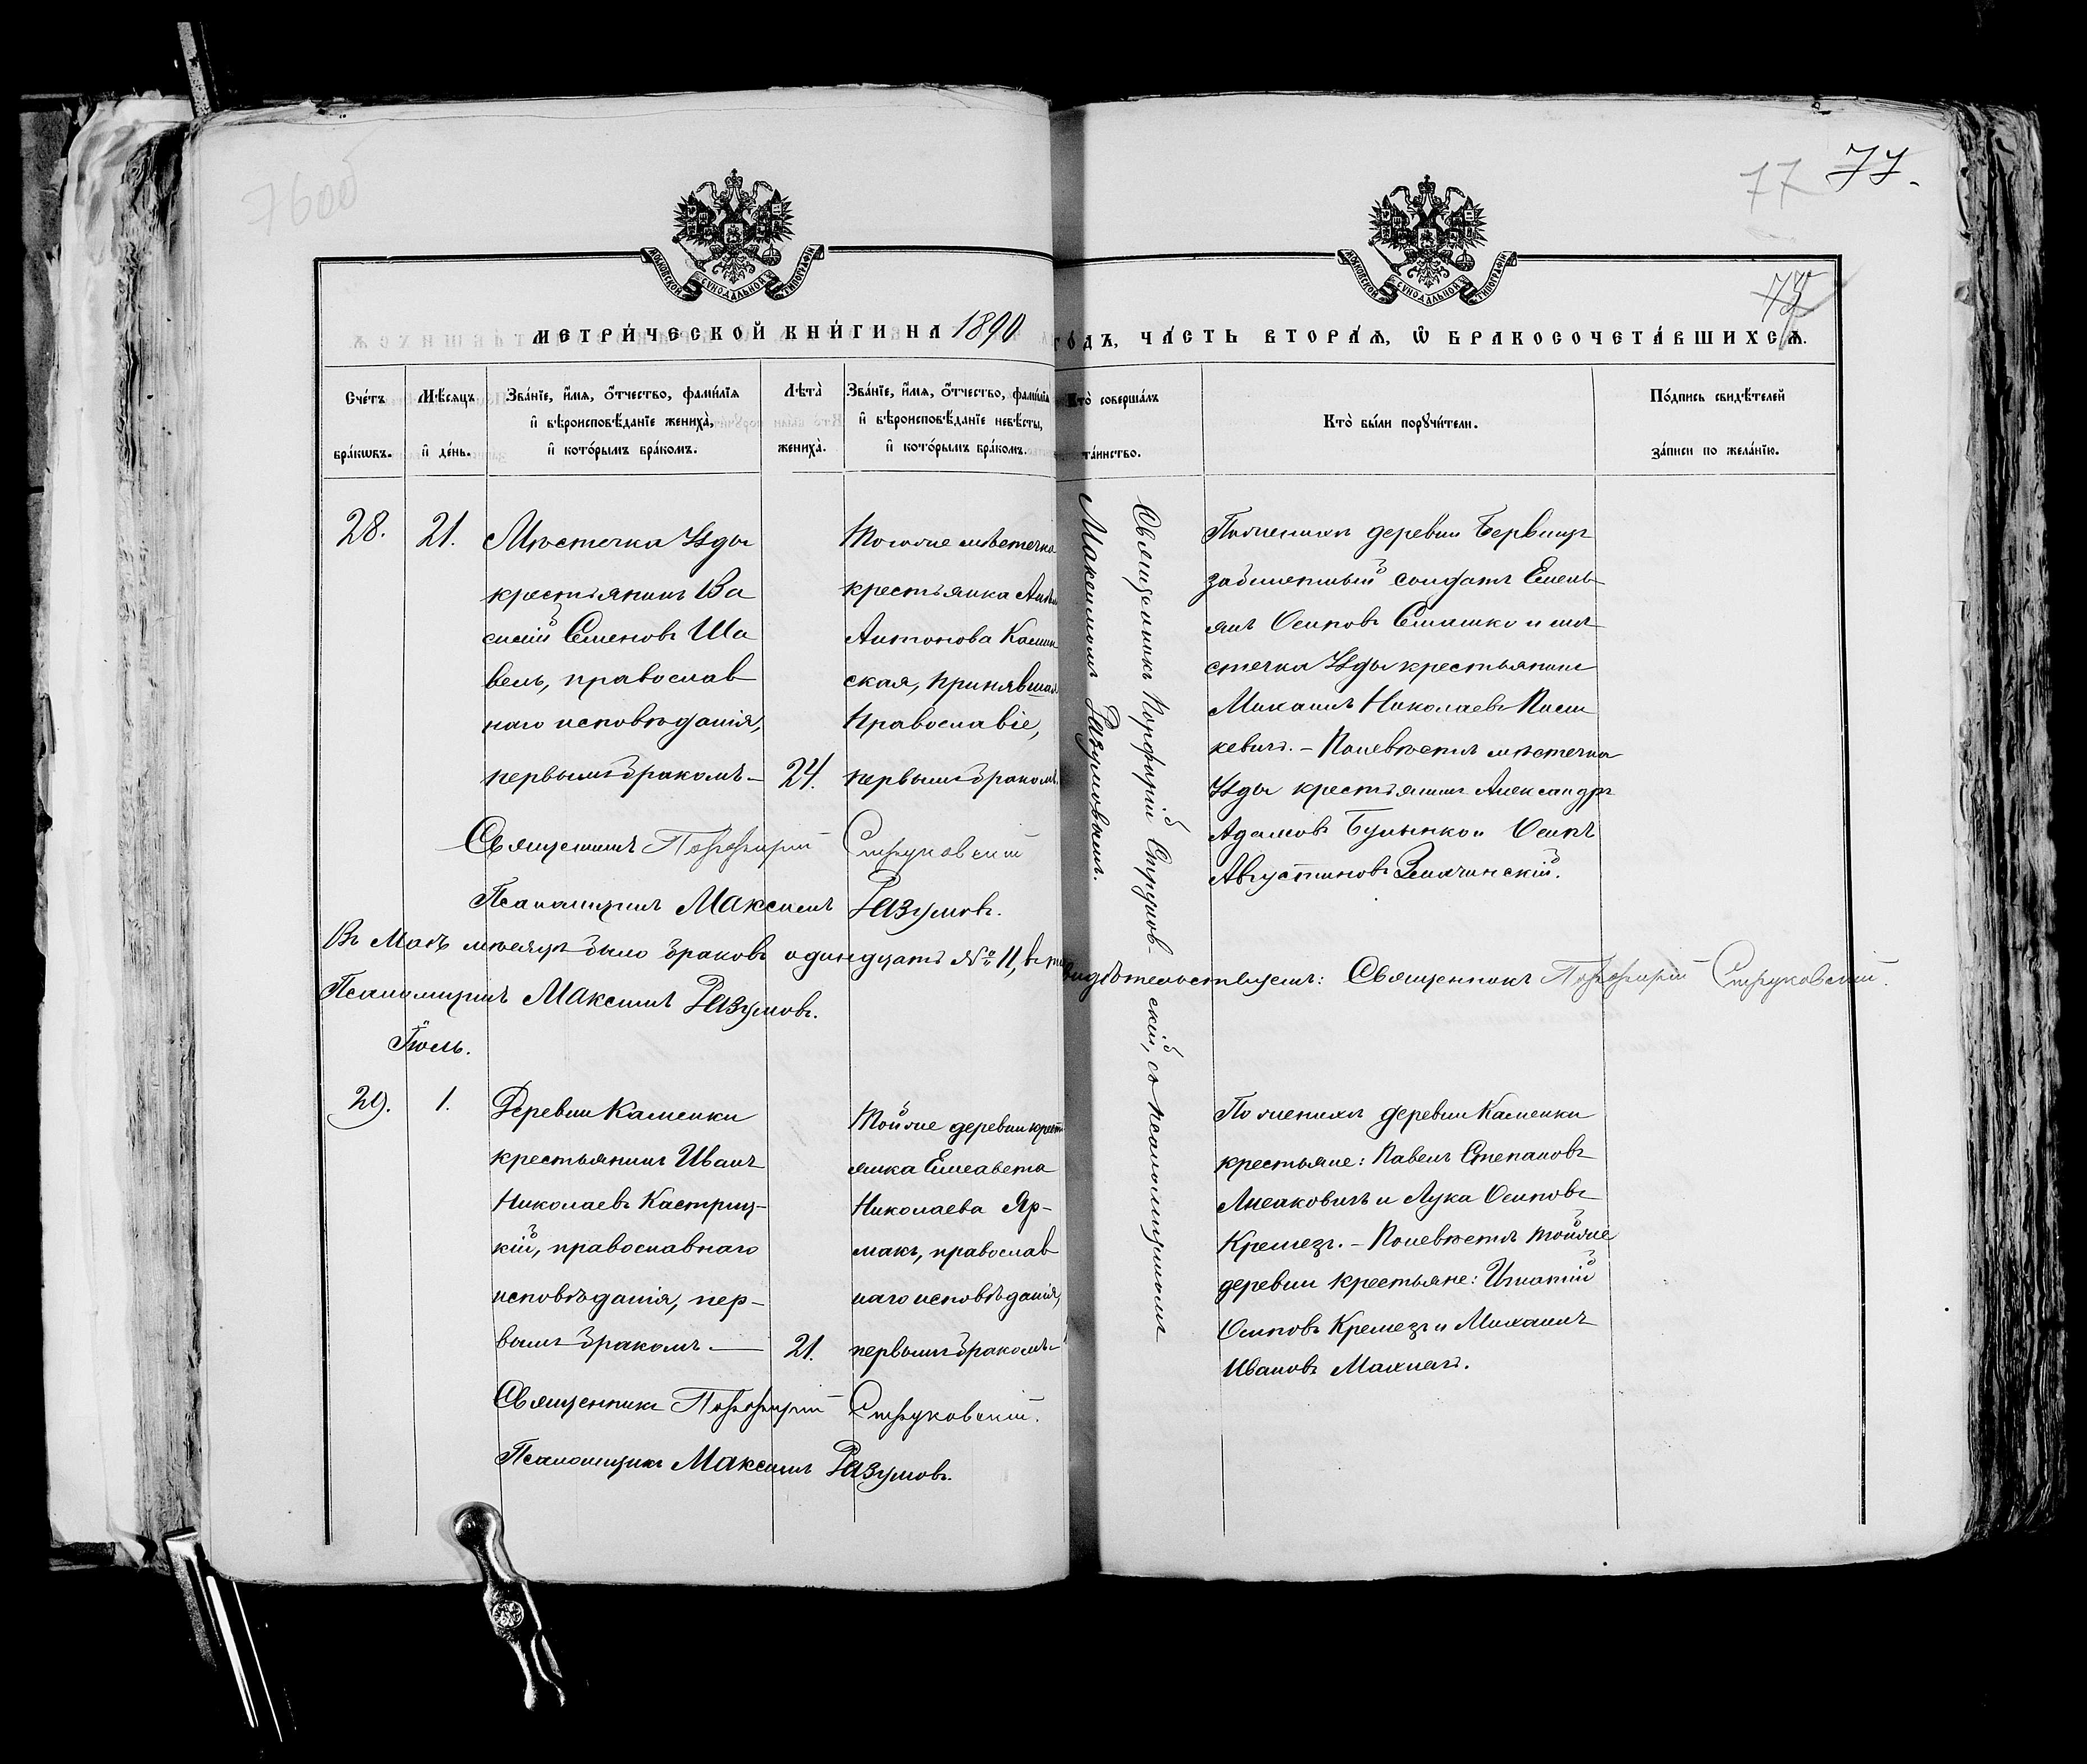 760б
77
77.
МОСКОВСКОЙ СѴНОДАЛЬНОЙ ТИПОГРАФІИ
МОСКОВСКОЙ СѴНОДАЛЬНОЙ ТИПОГРАФІИ
МЕТРИ́ЧЕСКОЙ КНИ́ГИ НА 1890 ГО́ДЪ, ЧА́СТЬ ВТОРА́Ѧ, Ѽ БРАКОСОЧЕТА́ВШИХСѦ.
Сче́тъ бра́кѡвъ.
Мѣ́сѧцъ и҆ де́нь.
Зва́нїе, и҆́мѧ, ѻ҆́тчество, фамѝлїѧ
и҆ вѣроисповѣ́данїе жениха̀,
и҆ кото́рымъ бра́комъ.
Лѣта̀ жениха̀.
Зва́нїе, и҆́мѧ, ѻ҆́тчество, фамѝлїѧ
и҆ вѣроисповѣ́данїе невѣ́сты,
и҆ кото́рымъ бра́комъ.
Кто̀ соверша́лъ та́инство.
Кто̀ бы́ли порꙋчи́тели.
По́дпись свидѣ́телей за́писи по жела́нїю.
28.
21.
Мѣстечка Узды
крестьянинъ Ва
силій Семеновъ Ша
вель, православ
наго исповѣданія,
первымъ бракомъ —
24.
Тогоже мѣстечка
крестьянка
Антонова
ская, принявшая
Православіе,
первымъ бракомъ.
Священникъ Порфирій Струков-
скій, съ псаломщикомъ
Максимомъ Разумовымъ.
По женихѣ деревни
солдатъ Емель-
янъ Осиповъ Сташко и мѣ-
стечка Узды крестьянинъ
Михаилъ Николаевъ
кевичъ. – По невѣстѣ мѣстечка
Узды крестьянинъ Александръ
Адамовъ Булынко и Осипъ
Августиновъ
Священникъ Порфирій Струковскій
Псаломщикъ Максимъ Разумовъ.
Въ Маѣ мѣсяцѣ было браковъ одинадцать № 11, въ
видѣтельствуемъ: Священникъ Порфирій Струковскій.
Псаломщикъ Максимъ Разумовъ.
Іюль.
29.
1.
Деревни Каменки
крестьянинъ Иванъ
Николаевъ Кастриц-
кій, православнаго
исповѣданія, пер-
вымъ бракомъ. —
21.
Тойже деревни крест
янка Елисавета
Николаева Яр-
макъ, православ
наго исповѣданія,
первымъ бракомъ.
По женихѣ деревни Каменки
крестьяне: Павелъ Степановъ
Лисаковичъ и Лука Осиповъ
Кремезъ. – По невѣстѣ тойже
деревни крестьяне: Игнатій
Осиповъ Кремезъ и Михаилъ
Ивановъ Махначъ.
Священникъ Порфирій Струковскій.
Псаломщикъ Максимъ Разумовъ.